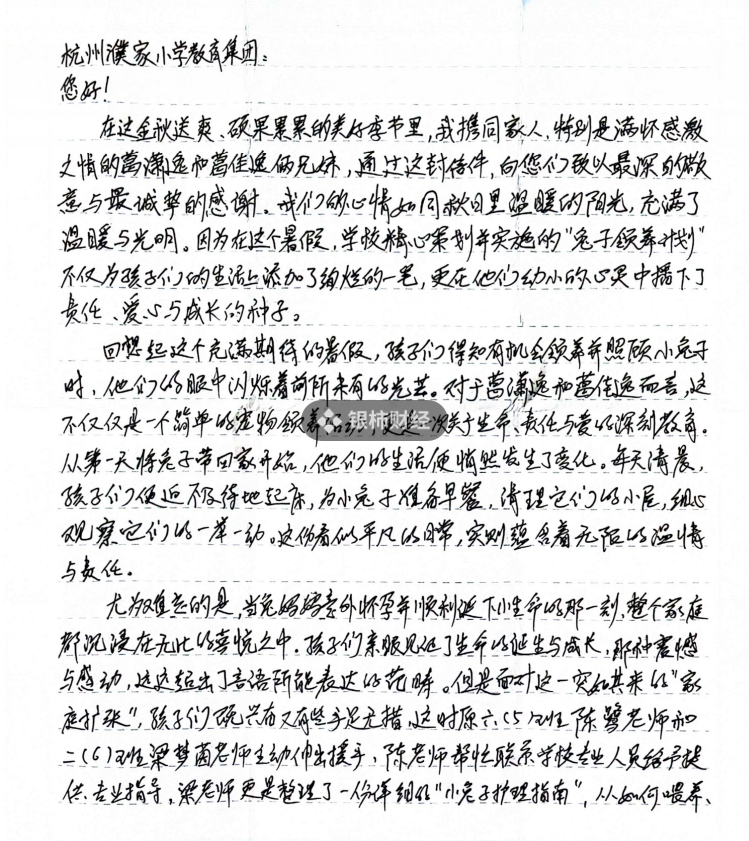 杭州濮家小学教育集团：
您好！
在这金秋送爽、硕果累累的美好季节里，我携同家人，特别是满怀感激
之情的葛潇逸和葛佳逸俩兄妹，通过这封信件，向您们致以最深的敬
意与最诚挚的感谢。我们的心情如同秋日里温暖的阳光，充满了
温暖与光明。因为在这个暑假，学校精心策划并实施的"兔子领养计划"
不仅为孩子们的生活上添加了绚烂的一笔，更在他们幼小的心灵中播下了
责任、爱心与成长的种子。
回想起这个充满期待的暑假，孩子们得知有机会领养并照顾小兔子
时，他们的眼中闪烁着前所未有的光芒。对于葛潇逸和葛佳逸而言，这
不仅仅是一个简单的宠物领养活动，更是一次关于生命、责任与爱的深刻教育。
银柿财经
从第一天将兔子带回家开始，他们的生活便悄然发生了变化。每天清晨，
孩子们便迫不及待地起床，为小兔子准备早餐，清理它们的小屋，细心
观察它们的一举一动。这份看似平凡的日常，实则蕴含着无限的温情
与责任。
尤为难忘的是，当兔妈妈意外怀孕并顺利诞下小生命的那一刻，整个家庭
都沉浸在无比的喜悦之中。孩子们亲眼见证了生命的诞生与成长，那种震憾
与感动，远远超出了言语所能表达的范畴。但是面对这一突如其来的"家
庭扩张"，孩子们既兴奋又有些手足无措，这时原六（5）班班 陈鹭老师和
二（6）班班梁梦茵老师主动伸出援手，陈老师帮忙联系学校专业人员给予提
供专业指导，梁老师更是整理了一份详细的"小兔子护理指南"，从如何喂养、